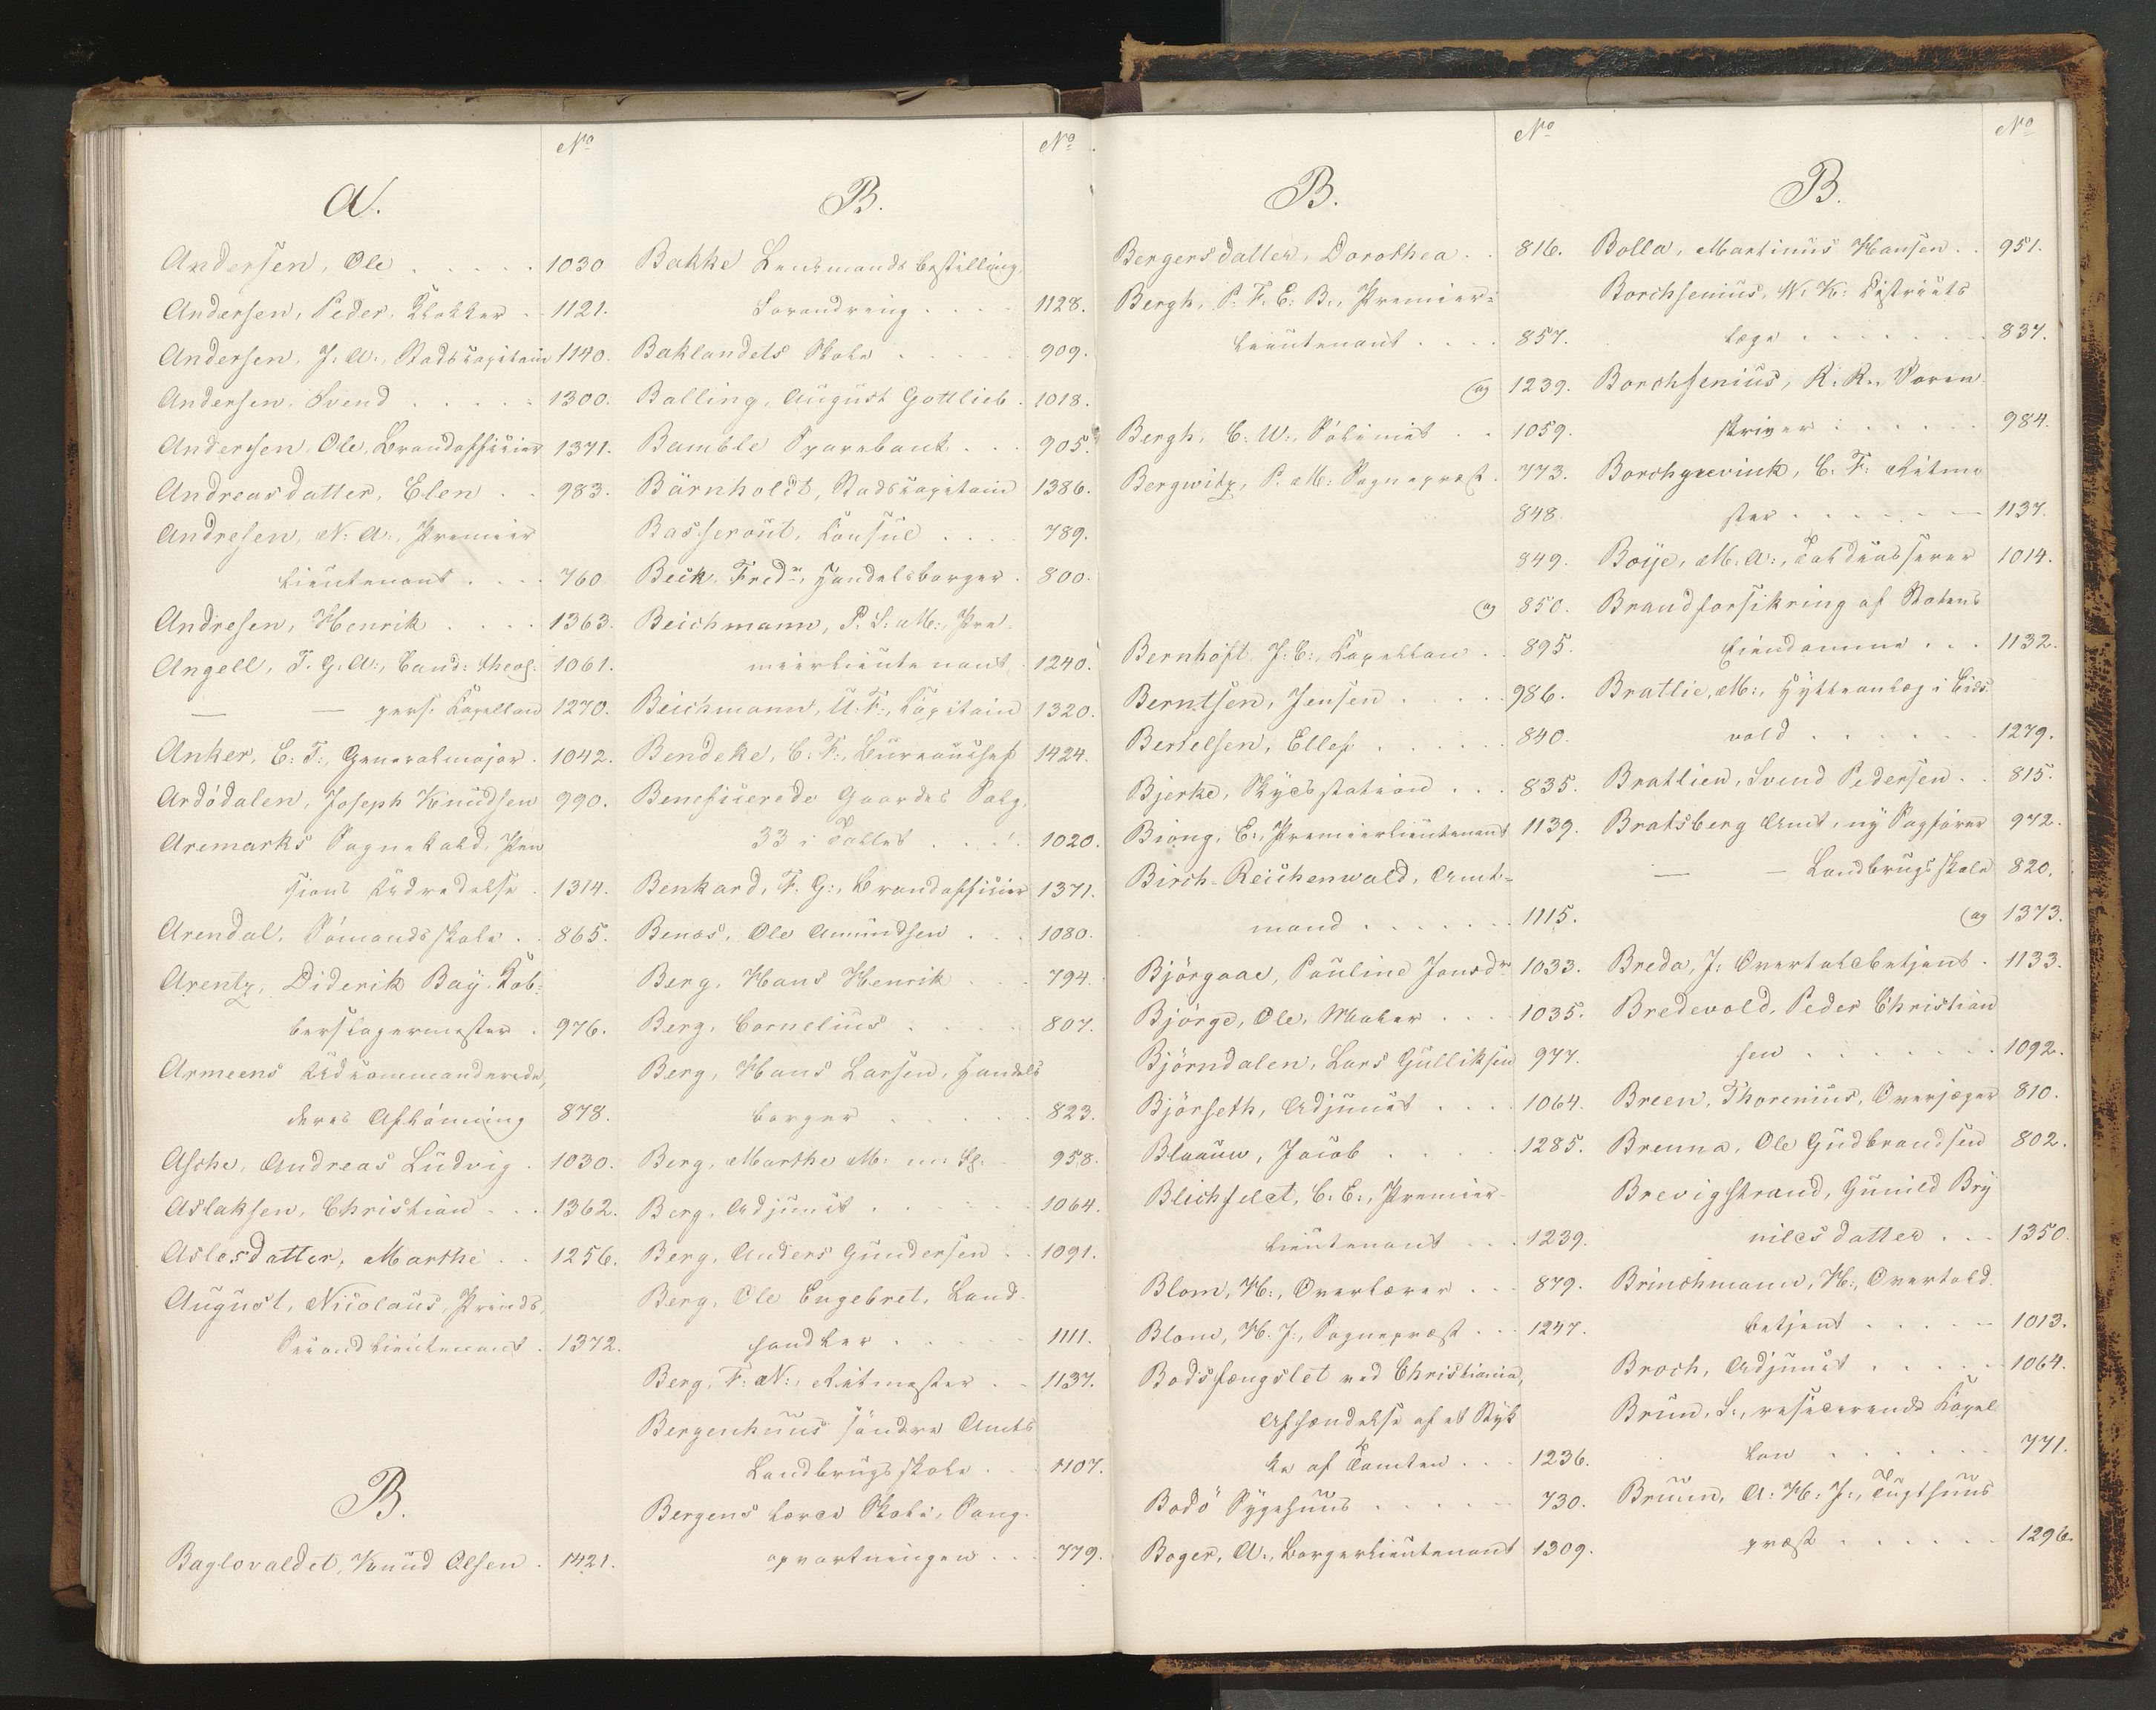 No
A.
Andersen, Ole . . . . . 1030
Andersen, Peder, Klokker . . 1121.
Andersen, J: A:, Stadskapitain 1140.
Andersen, Svend . . . . . 1300.
Andersen, Ole, Brandofficier 1371.
Andreasdatter, Elen . . 983.
Andresen, N: A:, Premier
Lieutenant . . . . 760
Andresen, Henrik . . . . 1363.
Angell, T. G. A:, Cand: theol: 1061.
— — pers: Kapellan 1270.
Anker, E: T:, Generalmajor . 1042.
Ardödalen, Joseph Knudsen 990.
Aremarks Sognekald, Pen
sions Udredelse . 1314.
Arendal, Sömandsskole . . 865.
Arentz, Diderik Bay, Kob-
berslagermester . 976.
Armeens Udkommanderede,
deres Aflönning 878.
Asche, Andreas Ludvig . 1030.
Aslaksen, Christian . . . 1362.
Aslesdatter, Marthe . . 1256.
August, Nicolaus, Prinds,
Secondlieutenant . 1372.
B.
Baglovaldet, Knud Olsen . 1421.
No
B.
Bakke Lensmandsbestilling,
Forandring . . . . 1128.
Baklandets Skole . . . . . 909.
Balling, August Gottlieb . 1018.
Bamble Sparebank . . . 905.
Bärnholdt, Stadskapitain 1386.
Basserout, Konsul . . . . 789.
Beck, Fredr, Handelsborger . 800.
Beichmann, P. S: M:, Pre
mierlieutenant . 1240.
Beichmann, U: F:, Kapitain 1320.
Bendeke, C: F:, Bureauchef 1424.
Beneficerede Gaardes Salg,
33 i Tallet . . . . 1020.
Benkard, F. G:, Brandofficier 1371.
Benos, Ole Amundsen . . . 1080.
Berg, Hans Henrik . . . 794.
Berg, Cornelius . . . . . 807.
Berg, Hans Larsen, Handels
borger . . . . . 823.
Berg, Marthe M: m: Fl: . 958.
Berg, Adjunct . . . . . . 1064.
Berg, Anders Gundersen . . 1091.
Berg, Ole Engebret, Land-
handler . . . . . 1111.
Berg, F: N:, Ritmester . . 1137.
Bergenhuus söndre Amts
Landbrugsskole . . . 1107.
Bergens lærde Skole, Sang-
opvartningen . . . 779.
No
B.
Bergersdatter, Dorothea . . 816.
Bergh, P. F. E: B:, Premier-
lieutenant . . . . 857.
og 1239.
Bergh, C: W:, Politimst . . 1059.
Bergwitz, P. M: Sognepræst . 773.
848.
849.
og 850.
Bernhoft, J: C:, Kapellan . . 895.
Berntsen, Jensen . . . . . 986.
Bertelsen, Ellef . . . . . . 840.
Bjerke, Skydsstation . . . 835.
Biong, E:, Premierlieutenant 1139.
Birch-Reichenwald, Amt-
mand . . . . . . . 1115.
Björgaae, Pauline Jonsdr 1033.
Björge, Ole, Maler . . . . 1035.
Björndalen, Lars Gulliksen 977.
Björseth, Adjunct . . . . 1064.
Blaauw, Jacob . . . . . 1285.
Blichfelct, C: E:, Premier-
lieutenant . . . 1239.
Blom, H:, Overlærer . . . 879.
Blom, H. J., Sognepræst . . . 1247.
Bodsfængslet ved Christiania,
Afhændelse af et Styk
ke af Tomten . . . 1236.
Bodö Sygehuus . . . . . 730.
Boger, A:, Borgerlieutenant 1309.
No
B.
Bolla, Martinus Hansen . . 951.
Borchsenius, N: K: Districts
læge . . . . . . . 837.
Borchsenius, R. R., Soren
skriver . . . . . . 984.
Borchgrevink, C: F: Ritme
ster . . . . . . . 1137.
Boije, M. A:, Tolddeserver 1014.
Brandforsikring af Statens
Eiendomme . . . 1132.
Bratlie, M:, Hytteanlæg i Eids
vold . . . . . . . 1279.
Bratlien, Svend Pedersen . . 815.
Bratsberg Amt, ny Sagförer 972.
— — Landbrugsskole 820.
og 1373.
Breda, J: Overtoldbetjent . 1133.
Bredevold, Peder Christian
sen . . . . . . . 1092.
Breen, Thorenius, Overjæger 810.
Brenna, Ole Gudbrandsen 802.
Brevigstrand, Gunild Bry
nildsdatter . . . 1350.
Brinchmann, H:, Overtold-
betjent . . . . . 1013.
Broch, Adjunct . . . . . 1064.
Brun, S:, residerende Kapel
lan . . . . . . . 771.
Bruun, A: H: J:, Tugthuus
præst . . . . . . 1296.